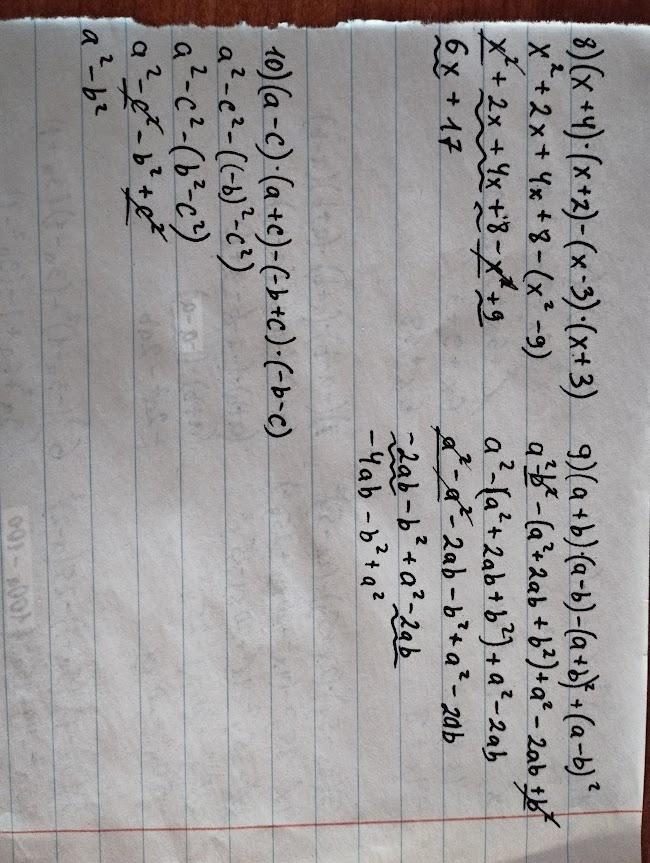 8)(x+4)·(x+2)-(x-3)·(x+3)
x²+2x+4x+8-(x²-9)
x²+2x+4x+8-x²+9
6x+17
9)(a+b)·(a-b)-(a+b)²+(a-b)²
a²-b²-(a²+2ab+b²)+a²-2ab+b²
a²-(a²+2ab+b²)+a²-2ab
a²-a²-2ab-b²+a²-2ab
-2ab-b²+a²-2ab
-4ab-b²+a²
10)(a-c)·(a+c)-(-b+c)·(-b-c)
a²-c²-((-b)²-c²)
a²-c²-(b²-c²)
a²-c²-b²+c²
a²-b²